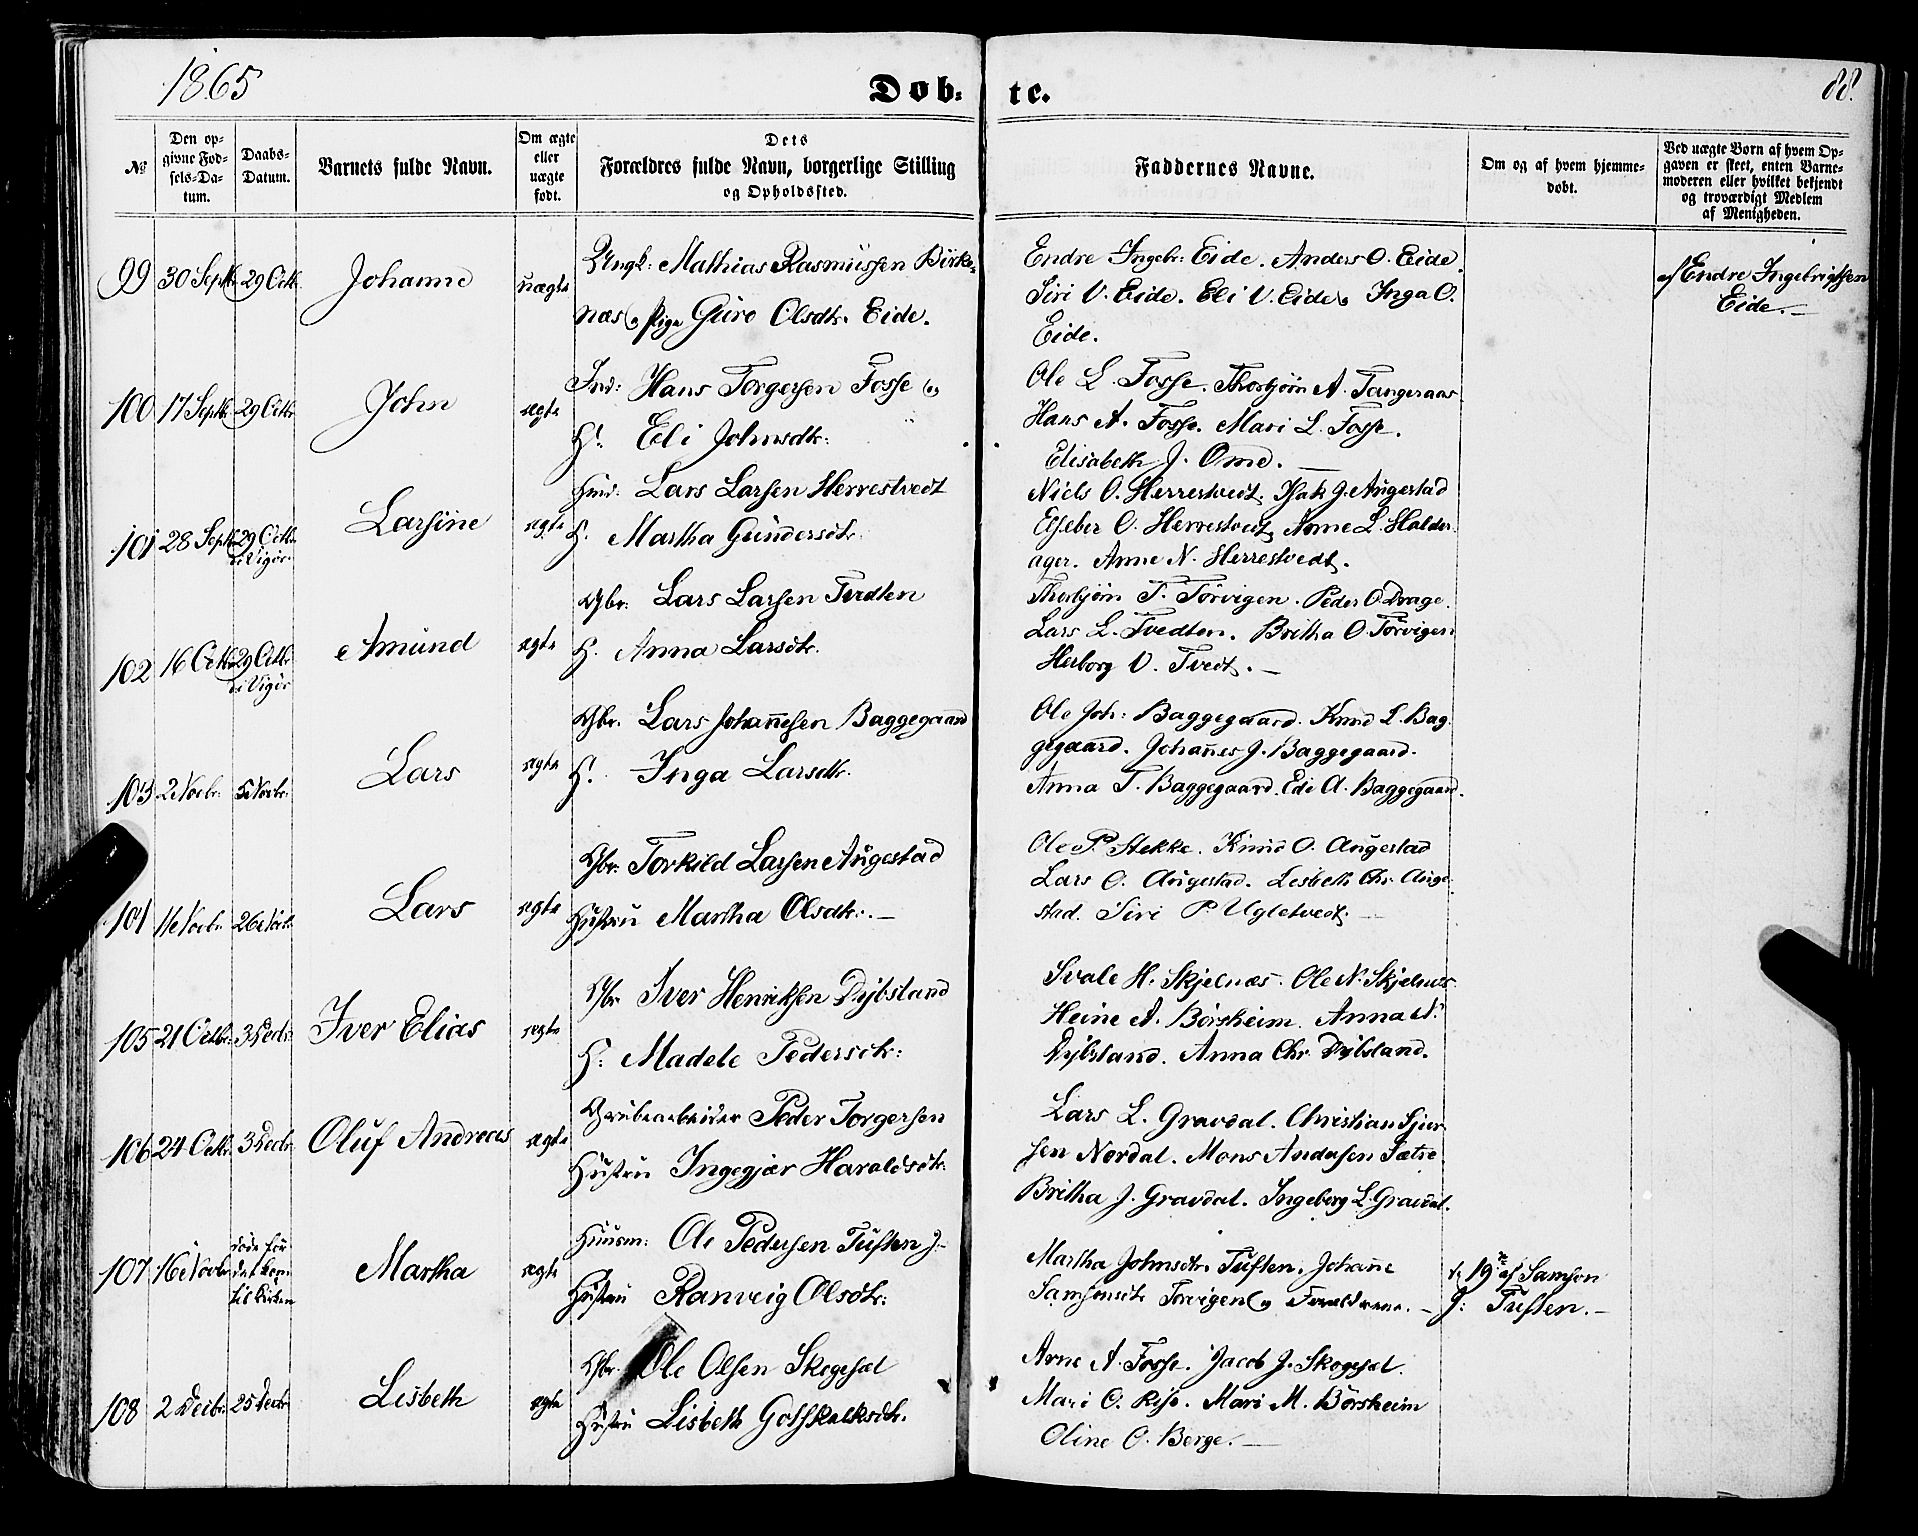 1865
Døb- te.
88.
No
Den op-
givne Fød-
sels-Da-
tum.
Daabs-
Datum.
Barnets fulde Navn.
Om ægte
eller
uægte
født.
Dets
Forældres fulde Navn, borgerlige Stilling
og Opholdssted.
Faddernes Navne.
Om og af hvem hjemme-
døbt.
Ved uægte Børn af hvem Op-
gaven er skeet, enten Barne-
moderen eller hvilket bekjendt
og troværdigt Medlem
af Menigheden.
99 30 Septb. 29 Octb. Johanne uægte
Ungk: Mathias Rasmussen Birke-
næs og Pige Guro Olsdtr. Eide.
Endre Ingebr: Eide. Anders O. Eide.
Siri V. Eide. Eli V. Eide og Inga O.
Eide.
af Endre Ingebrigtsen
Eide.
100 17 Septb. 29 Octb. John ægte
Ind: Hans Torgersen Fosse og
H. Eli Johnsdtr.
Ole L. Fosse. Thorbjørn A. Tangeraas
Hans A. Fosse. Mari L. Fosse.
Elisabeth J. Ome.
101 28 Septb. 29 Octb. i Vigør Larsine ægte
Huusm: Lars Larsen Herrestvedt
H. Martha Gundersdtr.
Niels O. Herrestvedt. Isak J. Augestad
Elseber O. Herrestvedt, Anne L. Halder-
ager. Anne N. Herrestvedt.
102 16 Octb. 29 Octb. i Vigør Amund ægte
Gbr. Lars Larsen Tvedten
H. Anna Larsdtr.
Thorbjørn T. Tørvigen. Peder O. Drage.
Lars L. Tvedten. Britha O. Tørvigen
Herborg V. Tvedt.
103 2 Novbr. 5 Novbr. Lars ægte
Gbr. Lars Johannesen Baggegaard
H. Inga Larsdtr.
Ole Joh: Baggegaard. Knud L. Bag-
gegaard. Johannes J. Baggegaard.
Anna T. Baggegaard. Edi A. Baggegaard.
104 11 Novbr. 26 Novbr. Lars ægte
Gbr. Torkild Larsen Augestad
Hustru Martha Olsdtr.
Ole P. Stekke. Knud O. Augestad
Lars O. Augestad. Lisbeth Chr. Auge-
stad. Siri P. Ugletvedt.
105 21 Octbr. 3 Decbr. Iver Elias ægte
Gbr. Iver Henriksen Dybsland
H. Madele Pedersdtr:
Svale H. Skjelnæs. Ole N. Skjelnæs
Heine A. Børsheim. Anna N.
Dybsland. Anna Chr. Dybsland.
106 24 Octbr. 3 Decbr. Oluf Andreas ægte
Grubearbeider Peder Torgersen
Hustru Ingegjær Haraldsdtr.
Lars L. Gravdal. Christian Siver-
sen Nordal. Mons Andersen Sætre.
Britha J. Gravdal. Ingeborg L. Gravdal.
107 16 Novbr. døde før det kom til Kirken Martha ægte
Huusm: Ole Pedersen Tuften
Hustru Ranveig Olsdtr.
Martha Johnsdtr. Tuften. Johanne
Samsonsdtr Tørvigen og Forældrene.
19de af Samson
J: Tuften.
108 2 Decbr. 25 Decbr. Lisbeth ægte
Gbr. Ole Olsen Skogesæl
Hustru Lisbeth Gotskalksdtr.
Arne A. Fosse. Jacob J. Skogesæl.
Mari O. Rise. Mari M. Børsheim
Oline O. Berge.